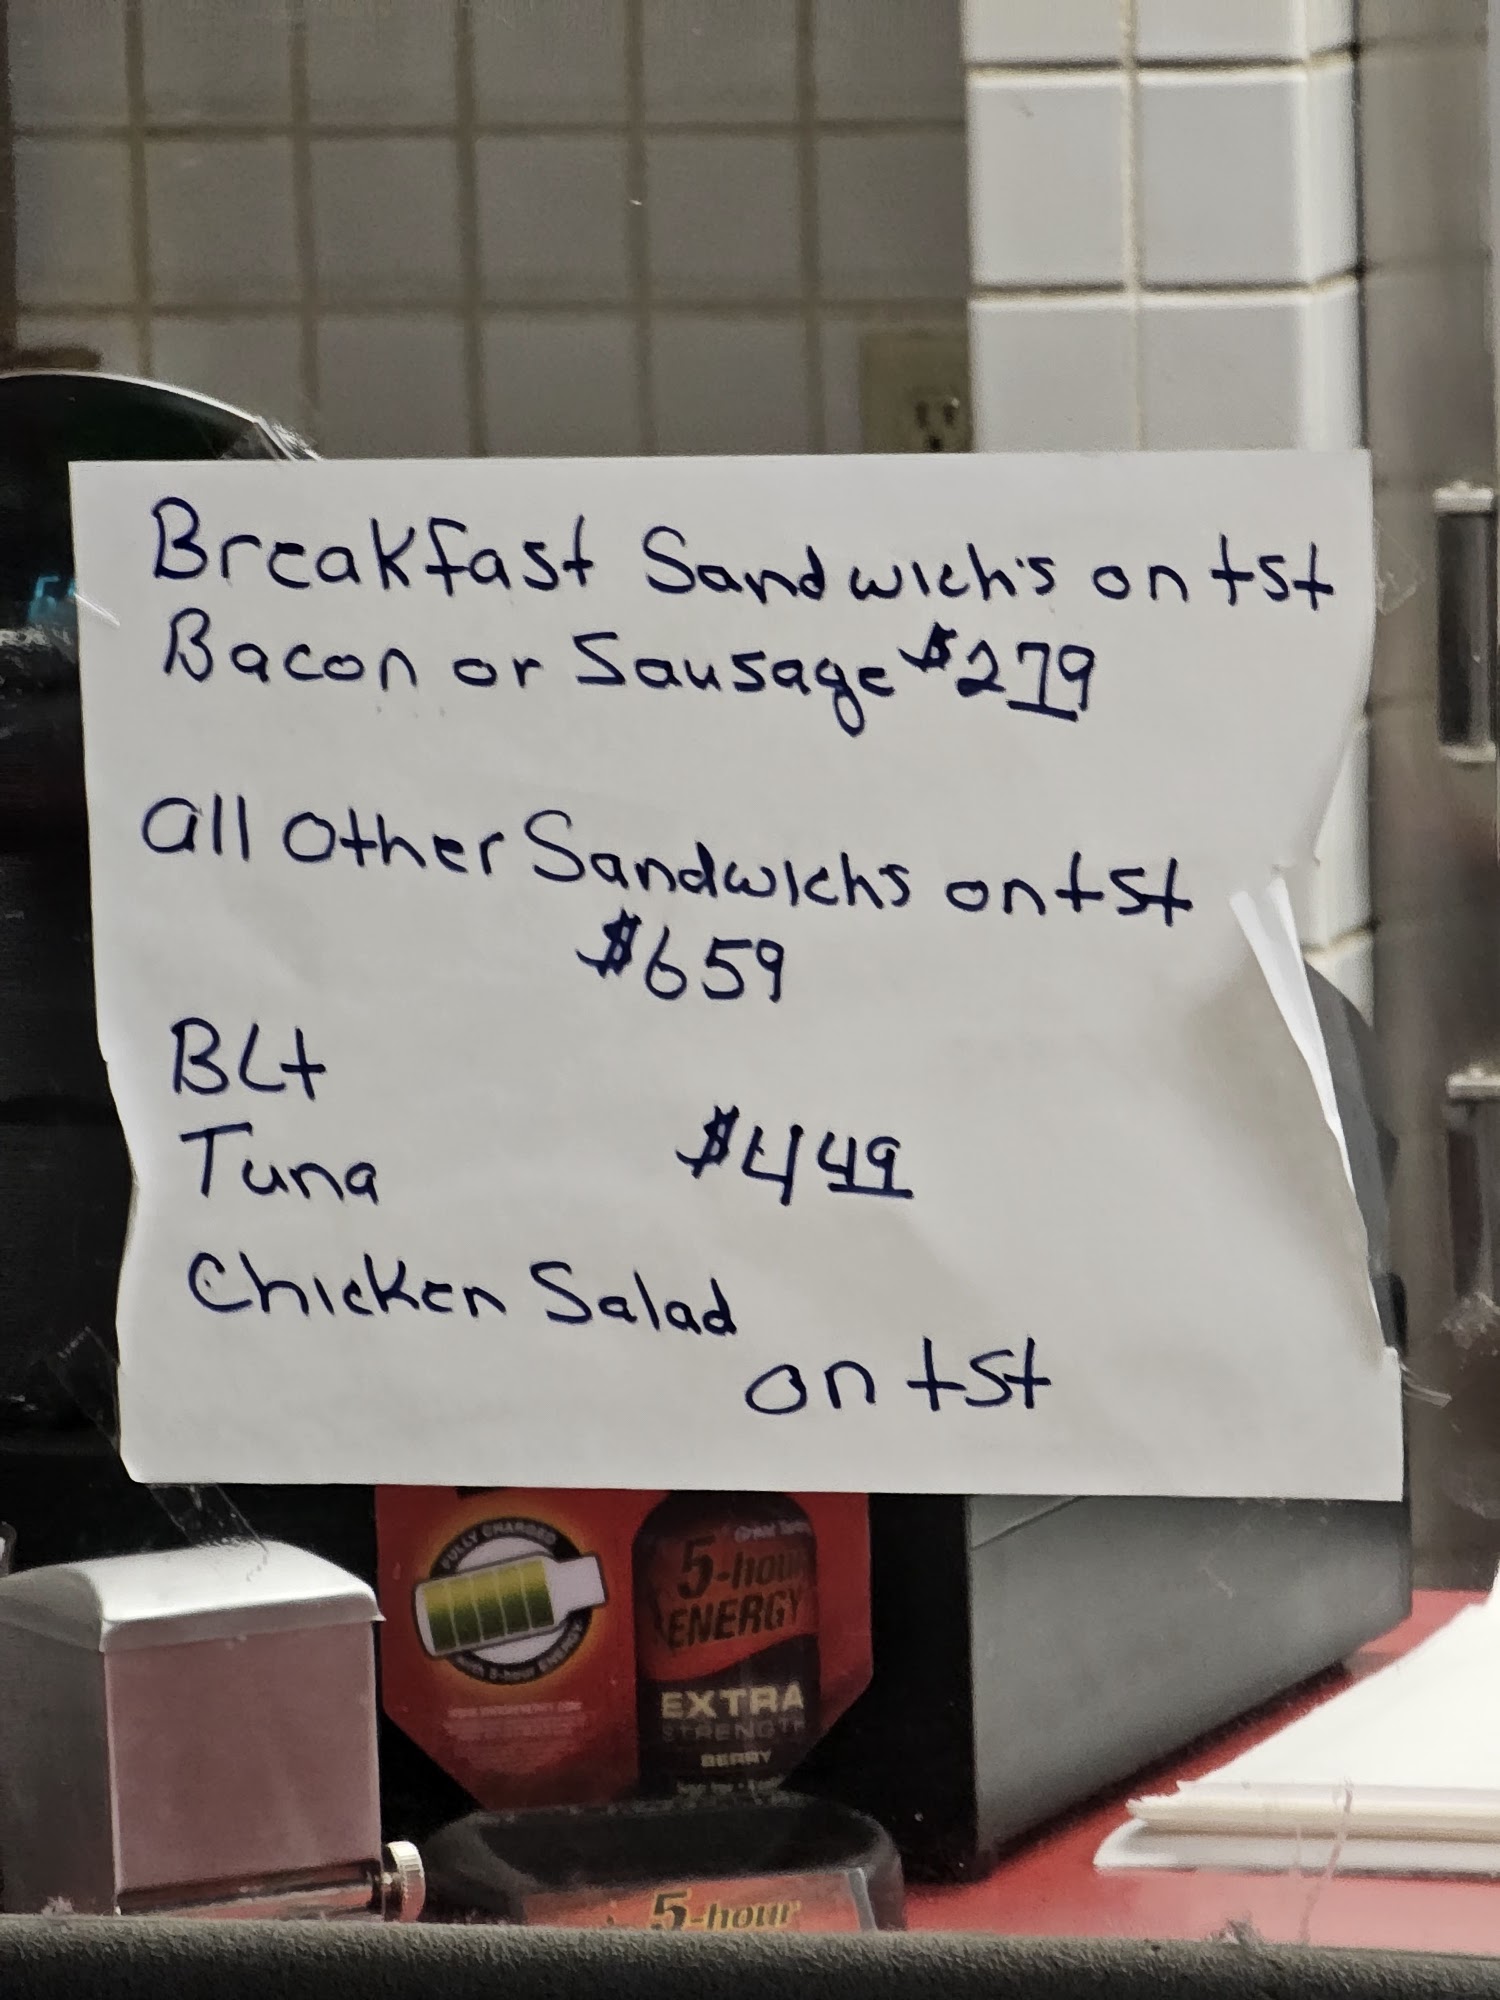 Breakfast Sandwich's on tst
Bacon or Sausage $279
all Other Sandwichs on tst
$659
BLt
Tuna $449
Chicken Salad
on tst
FULLY CHARGED
with 5-hour ENERGY
Great Taste
5-hour
ENERGY
EXTRA
STRENGTH
BERRY
5-hour